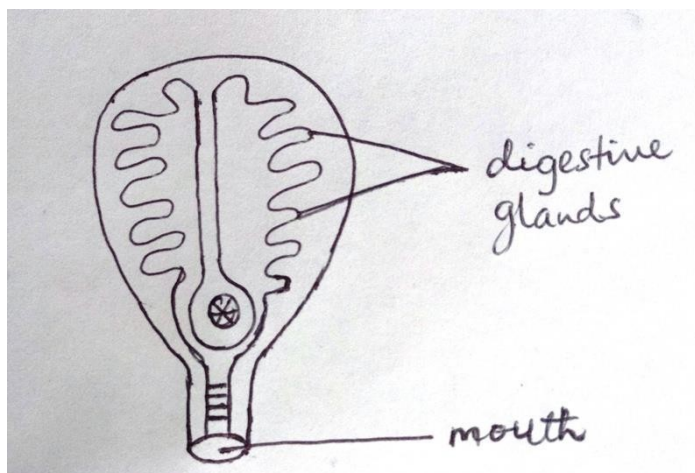 digestive
glands
mouth